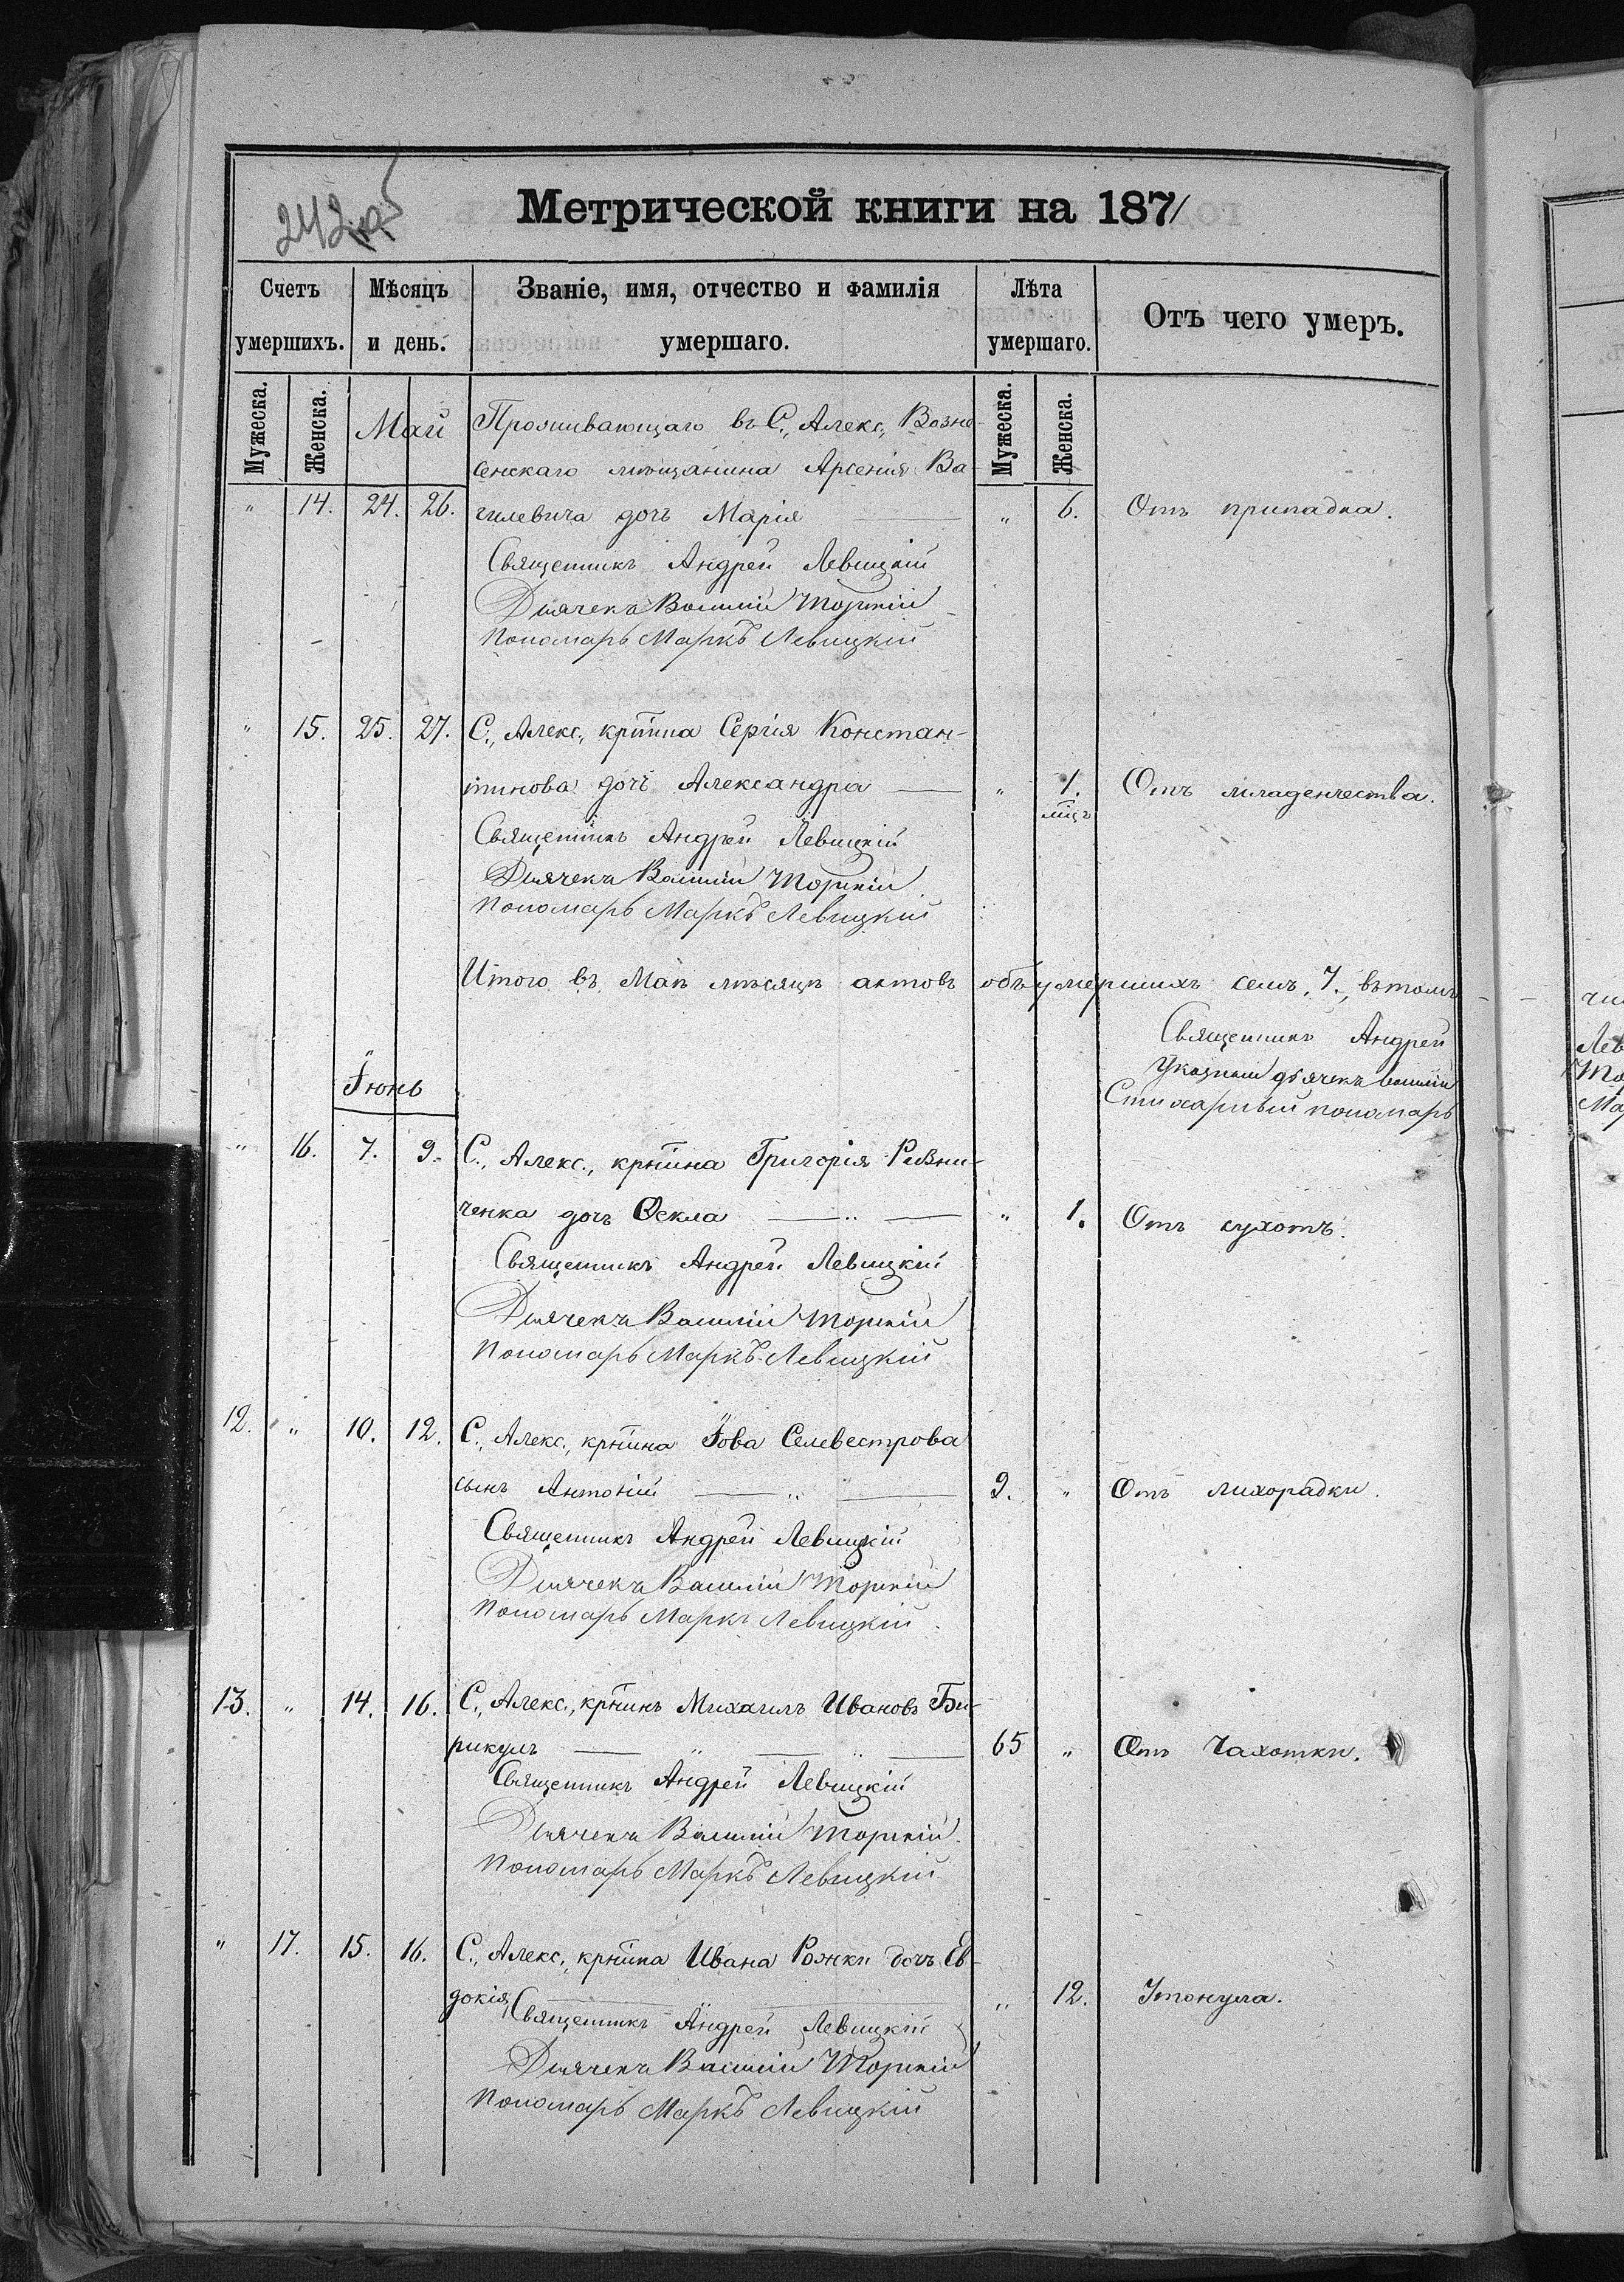 242 об
Метрической книги на 1871
Счетъ умершихъ.
Мѣсяцъ и день.
Званіе, имя, отчество и фамилія умершаго.
Лѣта умершаго.
Отъ чего умеръ.
Мужеска. Женска.
Май
Мужеска. Женска.
Проживающаго въ С., Алекс., Возне-
сенскаго мѣщанина Арсенія Ва-
" 14. 24. 26. гилевича дочь Марія " 6. Отъ припадка.
Священникъ Андрей Левицкій
Дьячекъ Василій Торскій
Пономарь Маркъ Левицкій
" 15. 25. 27. С., Алекс., кр҃тнина Сергія Констан-
тинова дочь Александра " 1. Отъ младенчества.
мц҃ъ
Священникъ Андрей Левицкій
Дьячекъ Василій Торскій
Пономарь Маркъ Левицкій
Итого въ Маѣ мѣсяцѣ актовъ объ умершихъ семь, 7., въ томъ
Священникъ Андрей
Указный дьячекъ Василій
Стихарный пономарь
Іюнь
" 16. 7. 9. С., Алекс., кр҃тнина Григорія Ревни-
ченка дочь Ѳекла " 1. Отъ сухотъ.
Священникъ Андрей Левицкій
Дьячекъ Василій Торскій
Пономарь Маркъ Левицкій
12. " 10. 12. С., Алекс., кр҃тнина Іова Селевестрова
сынъ Антоній 9. " Отъ лихорадки.
Священникъ Андрей Левицкій
Дьячекъ Василій Торскій
Пономарь Маркъ Левицкій
13. " 14. 16. С., Алекс., кр҃тнинъ Михаилъ Ивановъ Би-
рикулъ 65 " Отъ Чахотки.
Священникъ Андрей Левицкій
Дьячекъ Василій Торскій
Пономарь Маркъ Левицкій
" 17. 15. 16. С., Алекс., кр҃тнина Ивана Рожки дочь Ев-
докія " 12. Утонула.
Священникъ Андрей Левицкій
Дьячекъ Василій Торскій
Пономарь Маркъ Левицкій